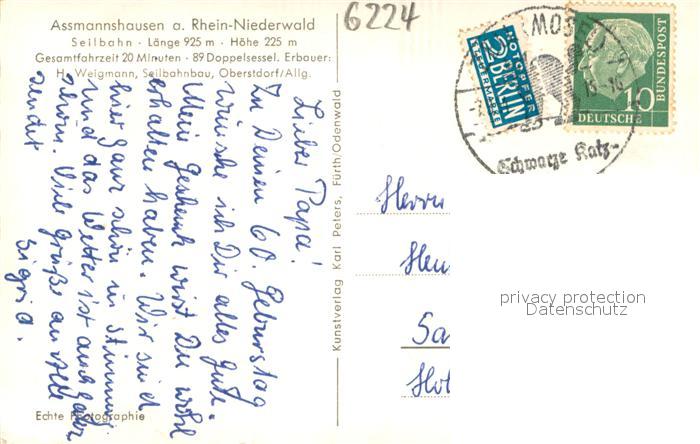 Assmannshausen a. Rhein-Niederwald
Seilbahn · Länge 925 m · Höhe 225 m
Gesamtfahrzeit 20 Minuten · 89 Doppelsessel. Erbauer:
H. Weigmann, Seilbahnbau, Oberstdorf/Allg.
6224
Lieber Papa!
Zu Deinem 60. Geburtstag
wünsche ich Dir alles Gute.
Mein Geschenk wirst Du wohl
erhalten haben. Wir sind
hier ganz schön in Stimmung
und das Wetter ist auch ganz
schön. Viele Grüße an alle
sendet
Sigrid.
Echte Photographie
Kunstverlag Karl Peters, Fürth/Odenwald
NOTOPFER
2 BERLIN
STEUERMARKE
MOSEL
Schwarze Katz-
10
DEUTSCHE
BUNDESPOST
Herrn
Sa
privacy protection
Datenschutz